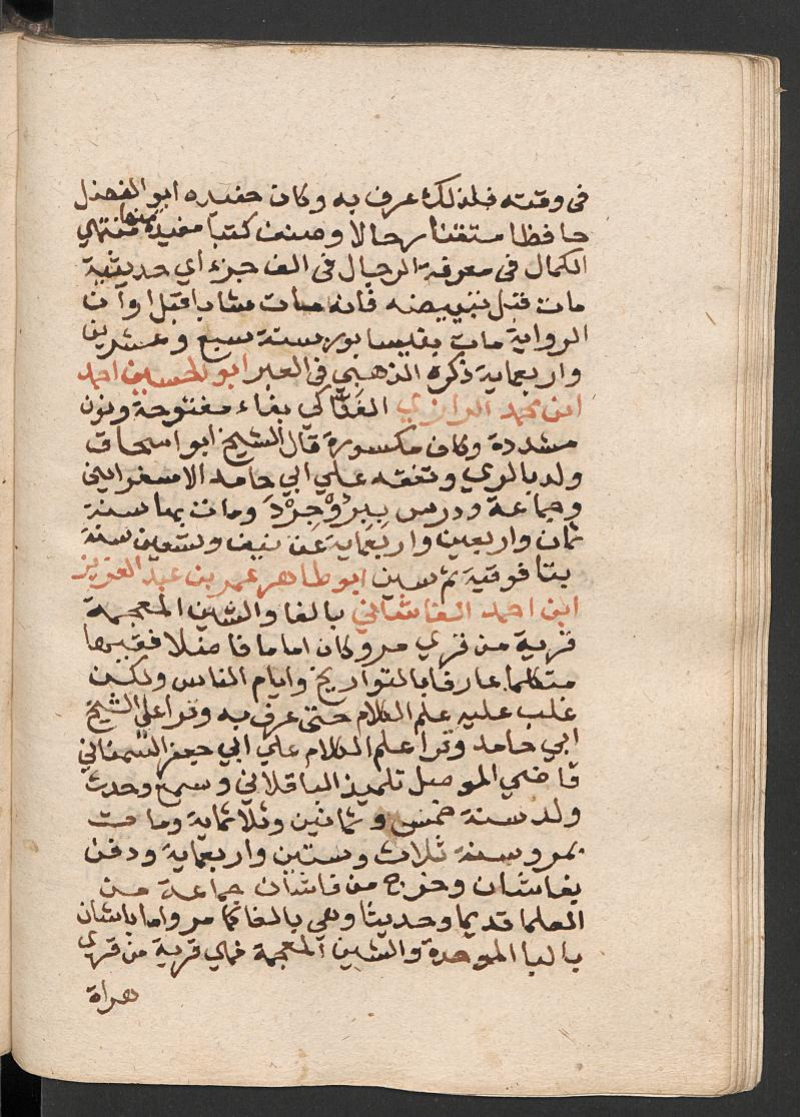 فى وقته فلذلك عرف به وكان حفيده ابو الفضل
حافظا متقنا رحالا وصنف كتبا مفيدة منها منتهي
الكمال فى معرفة الرجال فى الف جزء اي حديثية
مات قبل تبييضه فانه مات شابا قبل اوان
الرواية مات بنيسابور سنة سبع وعشرين
واربعماية ذكره الذهبي فى العبر ابو الحسين احمد
ابن محمد الرازي الفَنَّاكي بفاء مفتوحة ونون
مشددة وكاف مكسورة قال الشيخ ابو اسحاق
ولد بالري وتفقه علي ابي حامد الاسفرايني
وجماعة ودرس ببرُوْجِرْدَ ومات بها سنة
ثمان واربعين واربعماية عن نيف وتسعين سنة
بتا فوقية ثم سين ابو طاهر عمر بن عبد العزيز
ابن احمد الفاشاني بالفا والشين المعجمة
قرية من قري مرو كان اماما فاضلا فقيها
متكلما عارفا بالتواريخ وايام الناس ولكن
غلب عليه علم الكلام حتى عرف به وقرا علي الشيخ
ابي حامد وقرا علم الكلام علي ابي جعفر السمناني
قاضي الموصل تلميذ الباقلاني وسمع وحدث
ولد سنة خمس وثمانين وثلاثماية ومات
بمرو سنة ثلاث وستين واربعماية ودفن
بفاشان وخرج من فاشان جماعة من
العلما قديما وحديثا وهي بالفا كما مر واما باشان
بالبا الموحدة والشين المعجمة فهي قرية من قري
هراة